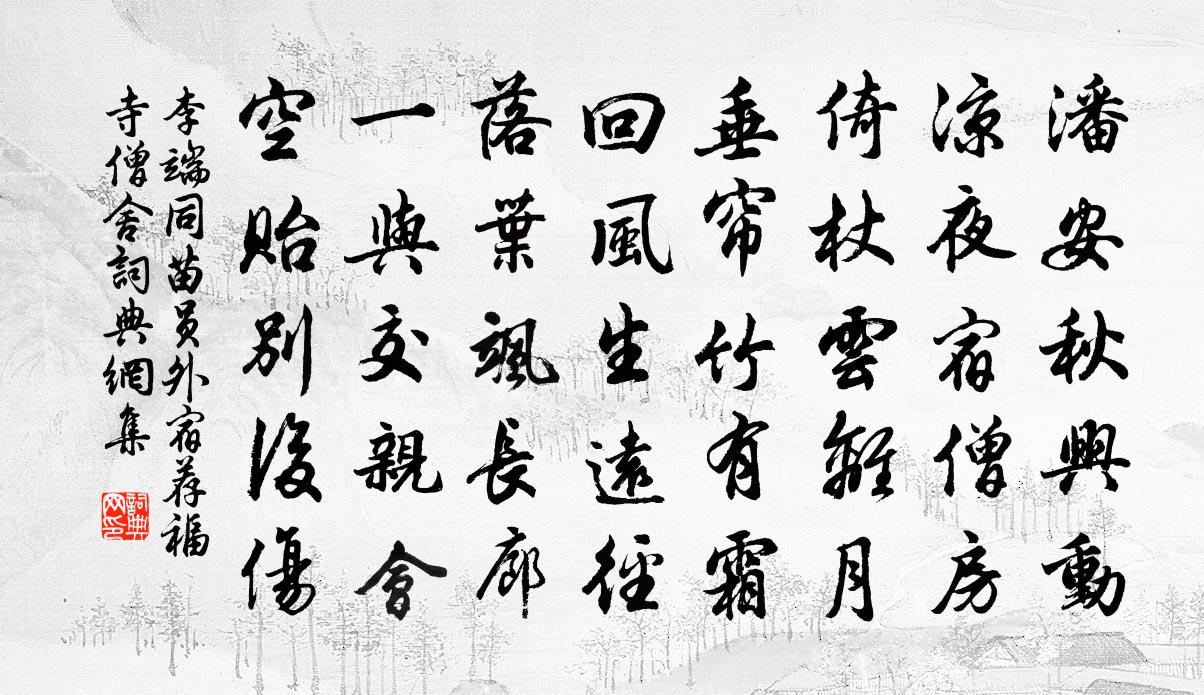 潘安秋興動
凉夜宿僧房
倚杖雲離月
垂帘竹有霜
回風生遠徑
落葉颯長廊
一與交親會
空貽別後傷
李端同苗员外宿荐福
寺僧舍詞典網集
詞典
网印